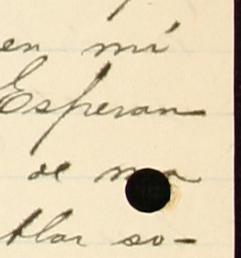 en mi
Esperan
de ma
blar so-